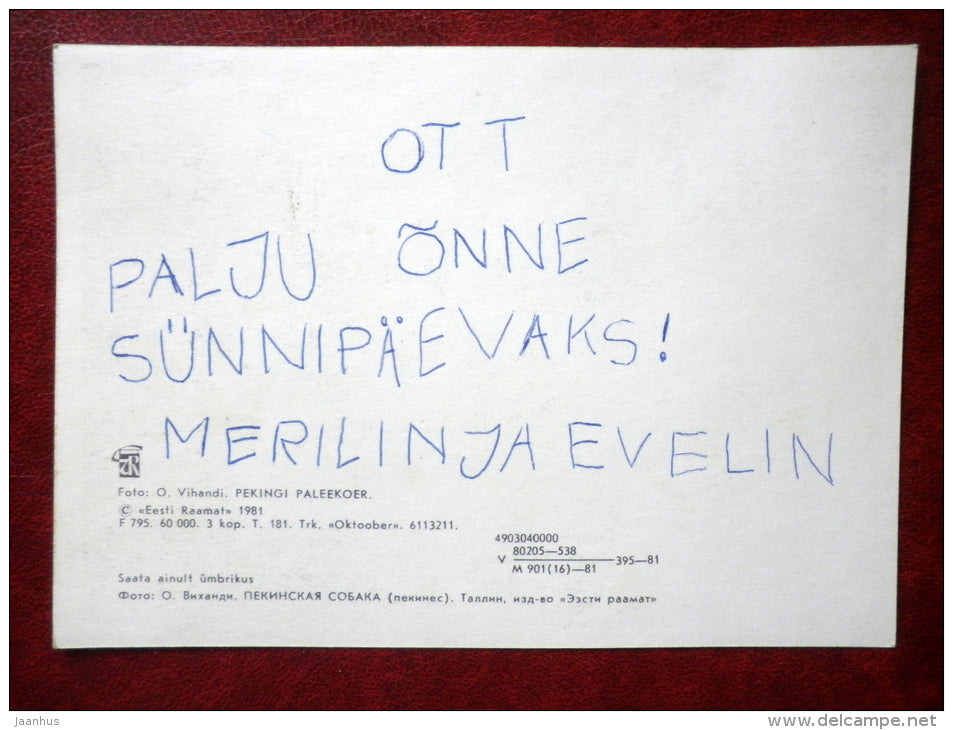 OTT
PALJU ÕNNE
SÜNNIPÄEVAKS!
MERILIN JA EVELIN
Foto: O. Vihandi. PEKINGI PALEEKOER.
© «Eesti Raamat» 1981
F 795. 60 000. 3 kop. T. 181. Trk. «Oktoober». 6113211.
4903040000
V 80205—538
M 901(16)—81 395—81
Saata ainult ümbrikus
Фото: О. Виханди. ПЕКИНСКАЯ СОБАКА (пекинес). Таллин, изд-во «Ээсти раамат»
jaanhus
www.delcampe.net